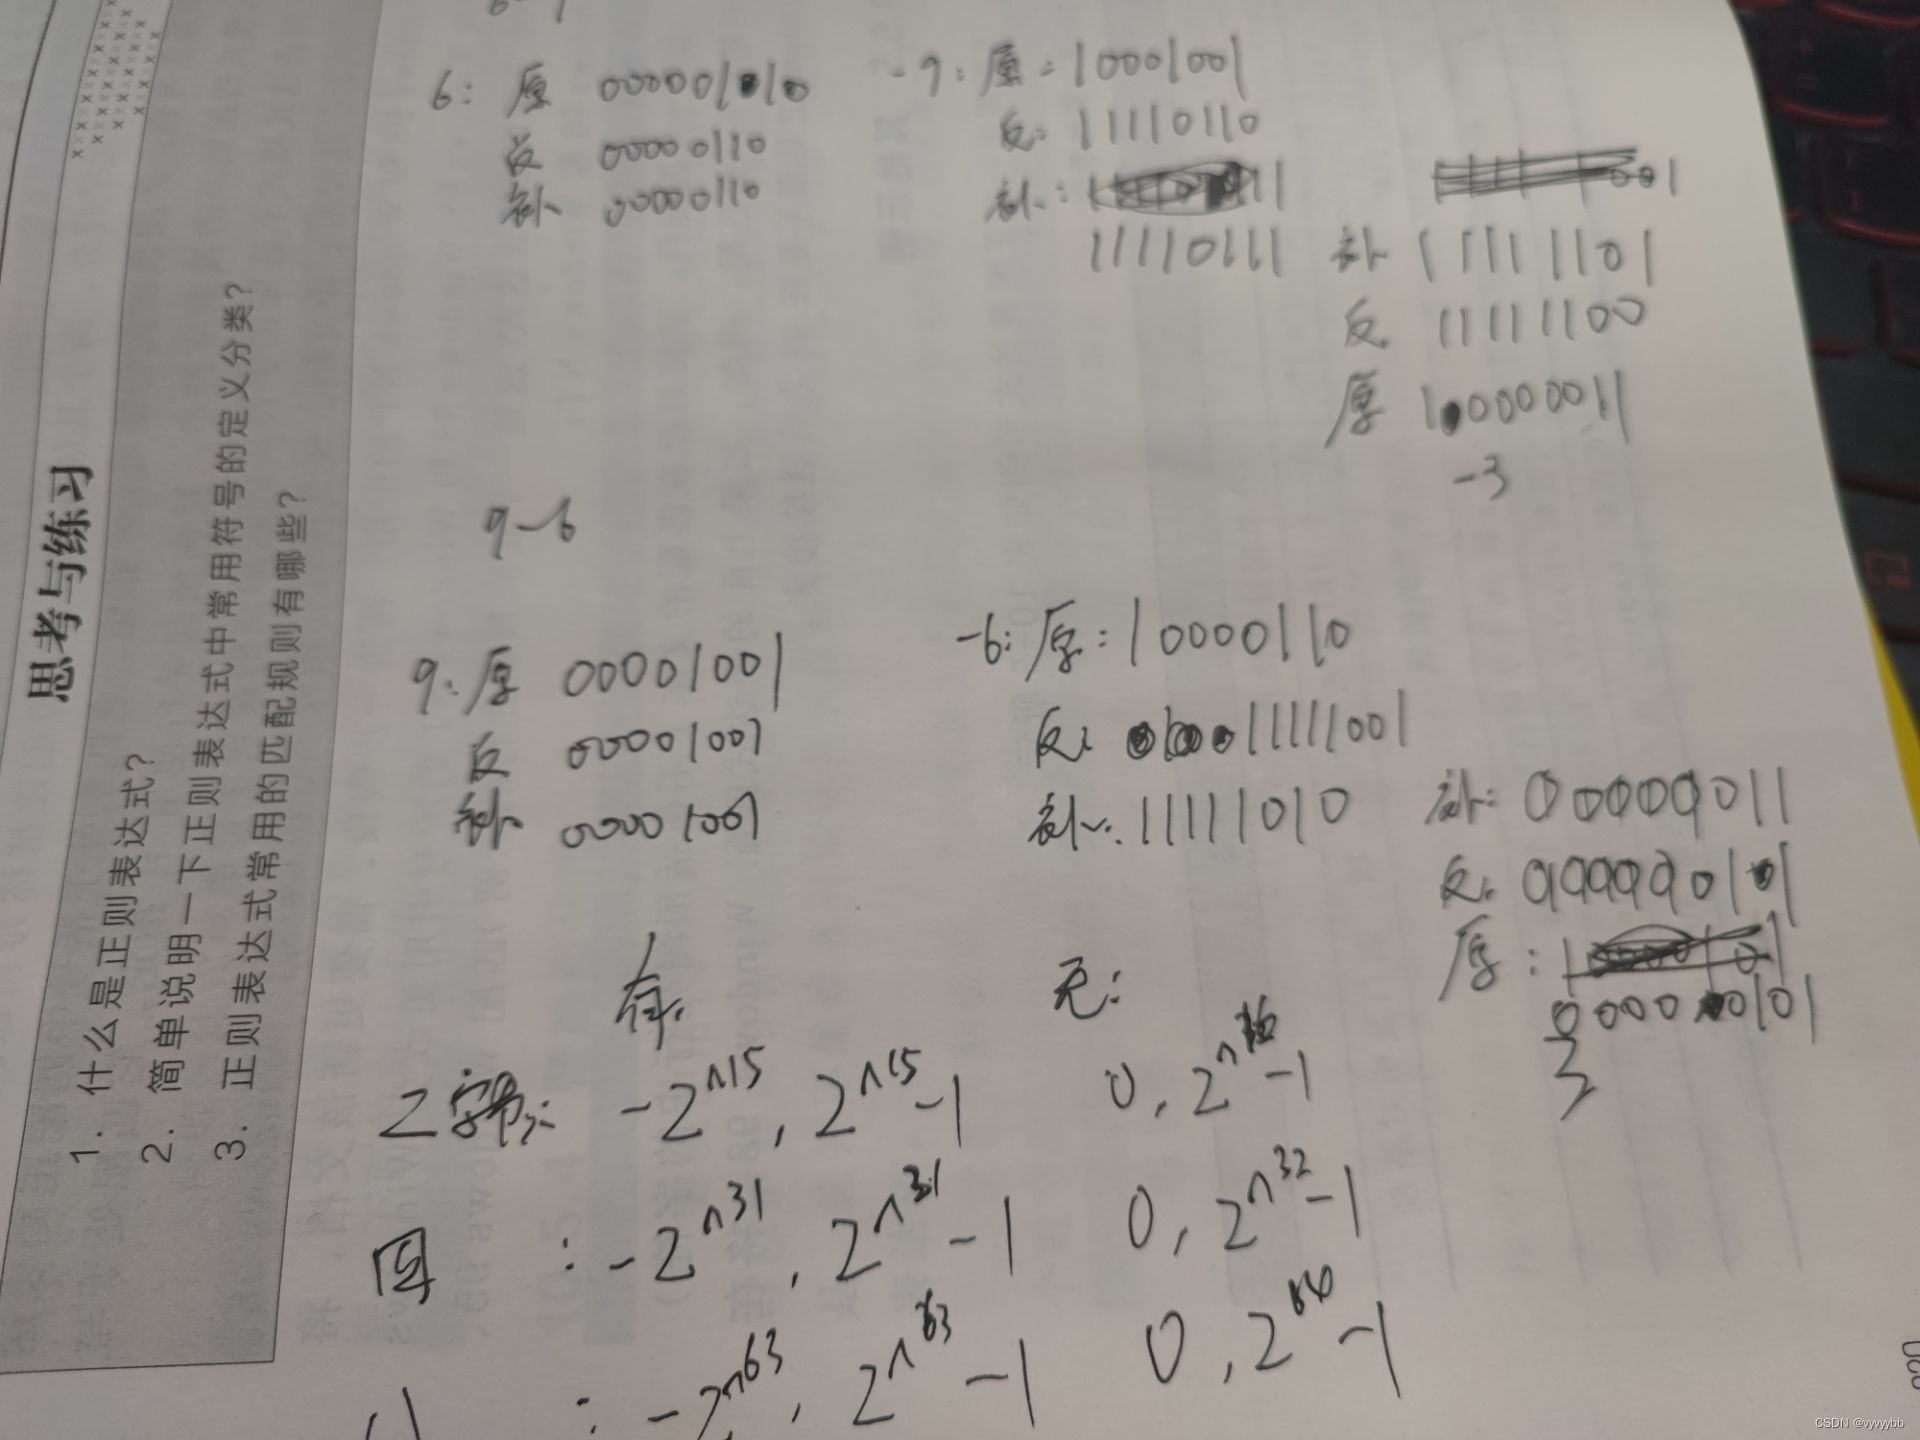 思考与练习
1. 什么是正则表达式？
2. 简单说明一下正则表达式中常用符号的定义分类？
3. 正则表达式常用的匹配规则有哪些？
6: 原 00000110
反 00000110
补 00000110
-9: 原: 10001001
反: 11110110
补:
11110111
补 11111101
反 11111100
原 10000011
-3
9-6
9: 原 00001001
反 00001001
补 00001001
-6: 原: 10000110
反: 11111001
补: 11111010
补: 00000011
反:
原:
3
有: 无:
2字节: -2^15, 2^15-1 0, 2^16-1
四 : -2^31, 2^31-1 0, 2^32-1
八 : -2^63, 2^63-1 0, 2^64-1
CSDN @vyvyybb